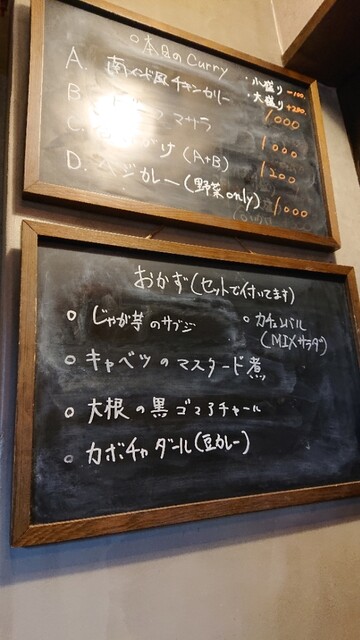 ○本日のCurry
・小盛り -100.
・大盛り +200.
A. 南インド風チキンカリー 1000
B. マサラ 1000
C. がけ (A+B) 1200
D. ベジカレー (野菜only) 1000
おかず(セットで付いてます)
○ じゃが芋のサブジ
○ カチュンバル
(MIXサラダ)
○ キャベツのマスタード煮
○ 大根の黒ゴマアチャール
○ カボチャダール(豆カレー)